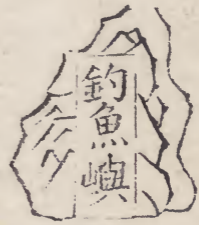 釣魚嶼